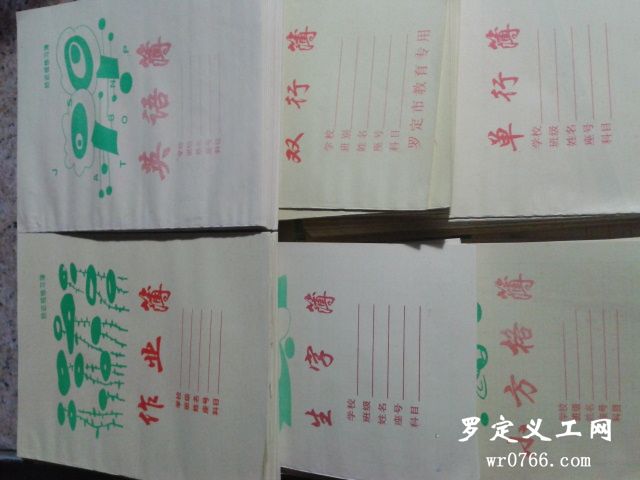 英语簿
学校
班级
姓名
座号
科目
双行簿
学校
班别
姓名
座号
科目
罗定市教育专用
单行簿
学校
班级
姓名
座号
科目
作业簿
学校
班级
姓名
座号
科目
生字簿
学校
班级
姓名
座号
科目
小方格簿
学校
班级
姓名
座号
科目
罗定义工网
wr0766.com